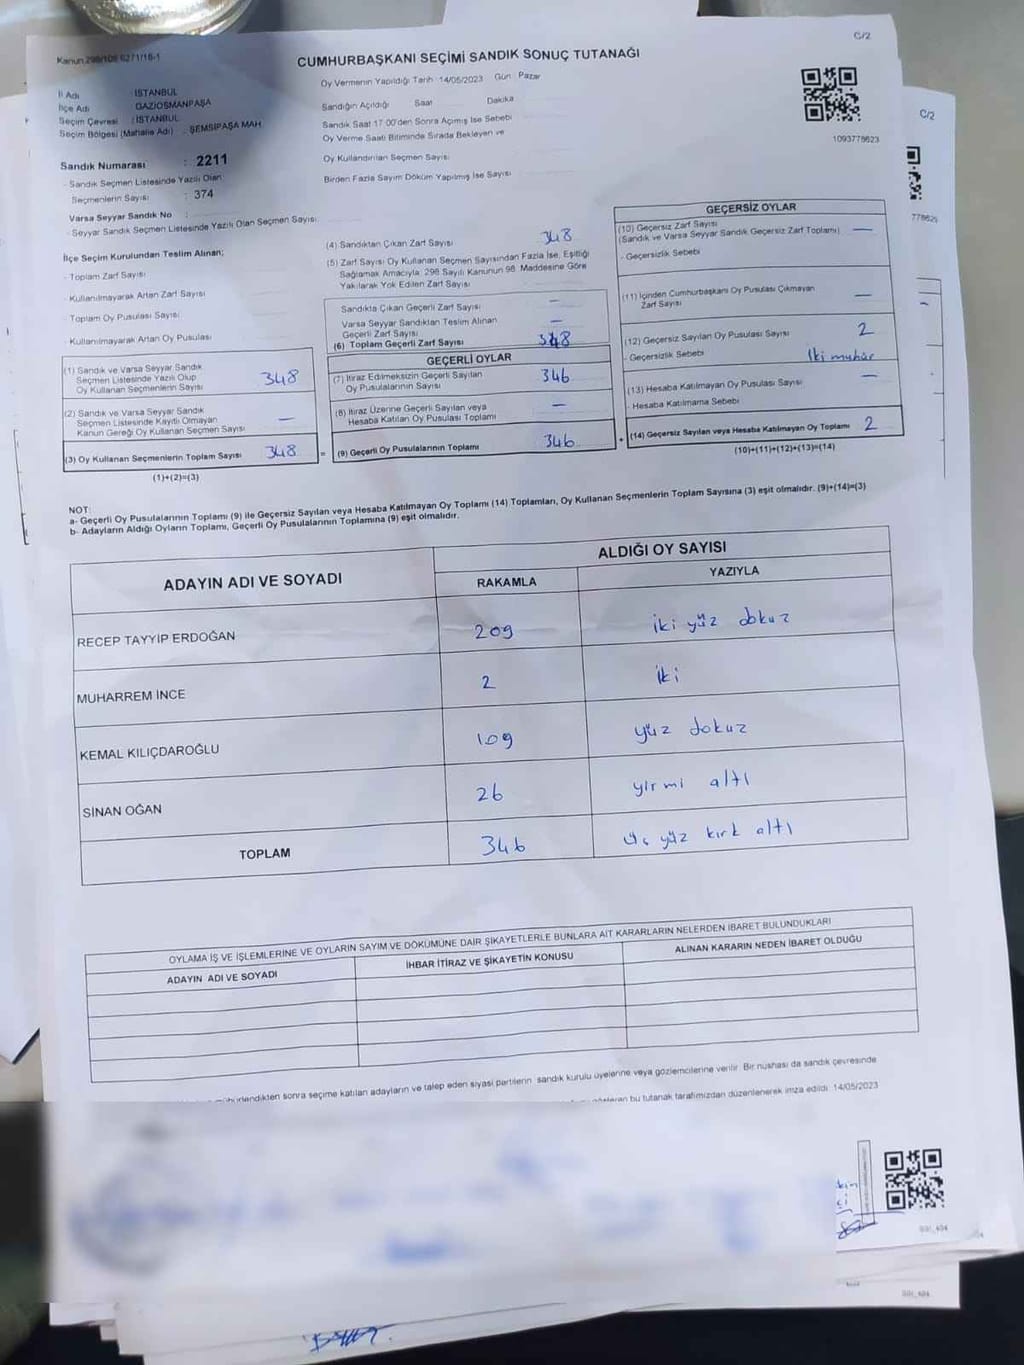 C/2
Kanun 298/106 6271/16-1
CUMHURBAŞKANI SEÇİMİ SANDIK SONUÇ TUTANAĞI
Oy Vermenin Yapıldığı Tarih :14/05/2023 Gün : Pazar
İl Adı : İSTANBUL
İlçe Adı : GAZİOSMANPAŞA
Seçim Çevresi : İSTANBUL
Seçim Bölgesi (Mahalle Adı) : ŞEMSİPAŞA MAH.
Sandığın Açıldığı Saat Dakika
Sandık Saat 17:00'den Sonra Açımış İse Sebebi
Oy Verme Saati Bitiminde Sırada Bekleyen ve
Oy Kullandırılan Seçmen Sayısı
Birden Fazla Sayım Döküm Yapılmış İse Sayısı
1093778623
C/2
778625
Sandık Numarası : 2211
- Sandık Seçmen Listesinde Yazılı Olan
Seçmenlerin Sayısı : 374
Varsa Seyyar Sandık No :
- Seyyar Sandık Seçmen Listesinde Yazılı Olan Seçmen Sayısı:
İlçe Seçim Kurulundan Teslim Alınan;
- Toplam Zarf Sayısı
- Kullanılmayarak Artan Zarf Sayısı
- Toplam Oy Pusulası Sayısı
- Kullanılmayarak Artan Oy Pusulası
(1) Sandık ve Varsa Seyyar Sandık
Seçmen Listesinde Yazılı Olup
Oy Kullanan Seçmenlerin Sayısı 348
(2) Sandık ve Varsa Seyyar Sandık
Seçmen Listesinde Kayıtlı Olmayan
Kanun Gereği Oy Kullanan Seçmen Sayısı —
(3) Oy Kullanan Seçmenlerin Toplam Sayısı 348 =
(1)+(2)=(3)
(4) Sandıktan Çıkan Zarf Sayısı 348
(5) Zarf Sayısı Oy Kullanan Seçmen Sayısından Fazla İse, Eşitliği
Sağlamak Amacıyla; 298 Sayılı Kanunun 98. Maddesine Göre
Yakılarak Yok Edilen Zarf Sayısı
Sandıkta Çıkan Geçerli Zarf Sayısı —
Varsa Seyyar Sandıktan Teslim Alınan
Geçerli Zarf Sayısı —
(6) Toplam Geçerli Zarf Sayısı 348
GEÇERLİ OYLAR
(7) İtiraz Edilmeksizin Geçerli Sayılan
Oy Pusulalarının Sayısı 346
(8) İtiraz Üzerine Geçerli Sayılan veya
Hesaba Katılan Oy Pusulası Toplamı —
(9) Geçerli Oy Pusulalarının Toplamı 346 +
GEÇERSİZ OYLAR
(10) Geçersiz Zarf Sayısı
(Sandık ve Varsa Seyyar Sandık Geçersiz Zarf Toplamı) —
- Geçersizlik Sebebi
(11) İçinden Cumhurbaşkanı Oy Pusulası Çıkmayan
Zarf Sayısı —
(12) Geçersiz Sayılan Oy Pusulası Sayısı 2
- Geçersizlik Sebebi İki mühür
(13) Hesaba Katılmayan Oy Pusulası Sayısı —
- Hesaba Katılmama Sebebi
(14) Geçersiz Sayılan veya Hesaba Katılmayan Oy Toplamı 2
(10)+(11)+(12)+(13)=(14)
NOT:
a- Geçerli Oy Pusulalarının Toplamı (9) ile Geçersiz Sayılan veya Hesaba Katılmayan Oy Toplamı (14) Toplamları, Oy Kullanan Seçmenlerin Toplam Sayısına (3) eşit olmalıdır. (9)+(14)=(3)
b- Adayların Aldığı Oyların Toplamı, Geçerli Oy Pusulalarının Toplamına (9) eşit olmalıdır.
ADAYIN ADI VE SOYADI
ALDIĞI OY SAYISI
RAKAMLA YAZIYLA
RECEP TAYYİP ERDOĞAN 209 iki yüz dokuz
MUHARREM İNCE 2 iki
KEMAL KILIÇDAROĞLU 109 yüz dokuz
SİNAN OĞAN 26 yirmi altı
TOPLAM 346 üç yüz kırk altı
OYLAMA İŞ VE İŞLEMLERİNE VE OYLARIN SAYIM VE DÖKÜMÜNE DAİR ŞİKAYETLERLE BUNLARA AİT KARARLARIN NELERDEN İBARET BULUNDUKLARI
ADAYIN ADI VE SOYADI İHBAR İTİRAZ VE ŞİKAYETİN KONUSU ALINAN KARARIN NEDEN İBARET OLDUĞU
sonra seçime katılan adayların ve talep eden siyasi partilerin sandık kurulu üyelerine veya gözlemcilerine verilir. Bir nüshası da sandık çevresinde
bu tutanak tarafımızdan düzenlenerek imza edildi. 14/05/2023